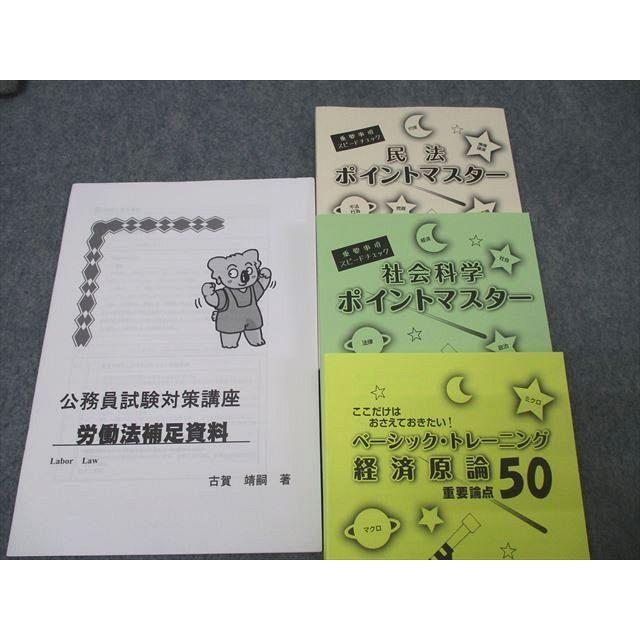 公務員試験対策講座
労働法補足資料
Labor Law
古賀 靖嗣 著
重要事項
スピードチェック
民法
ポイントマスター
問題
不法
行為
重要事項
スピードチェック
社会科学
ポイントマスター
経済
社会
法律
政治
ここだけは
おさえておきたい!
ベーシック・トレーニング
経済原論
重要論点50
ミクロ
マクロ